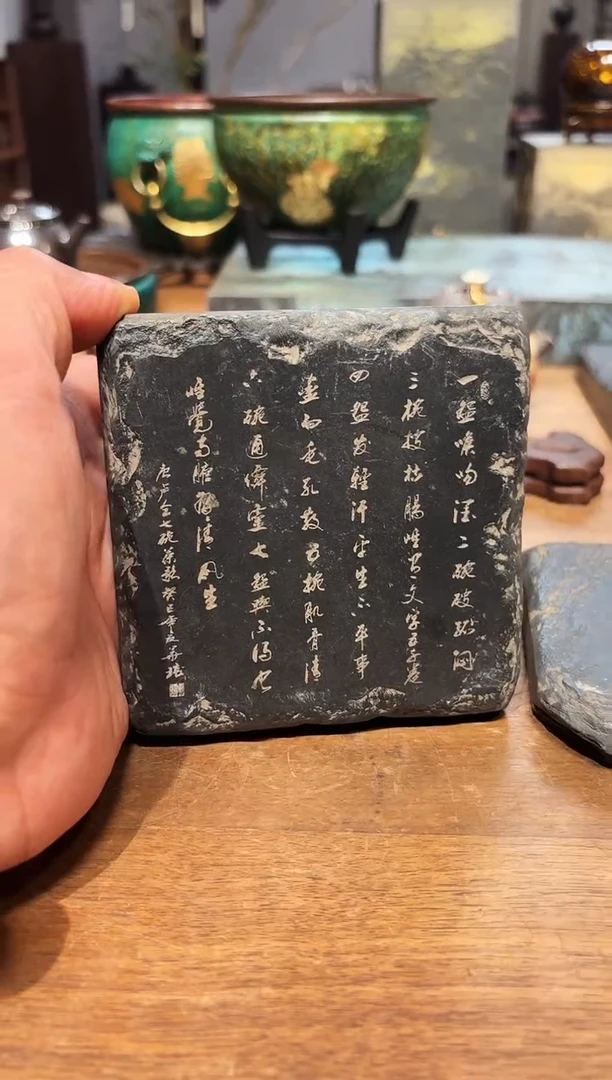 一盌喉吻潤二碗破孤悶
三椀搜枯腸唯有文字五千卷
四盌发輕汗平生不平事
盡向毛孔散五椀肌骨清
六碗通僊靈七盌喫不得也
唯覺两腋習習清風生
唐卢仝七碗茶歌癸巳年